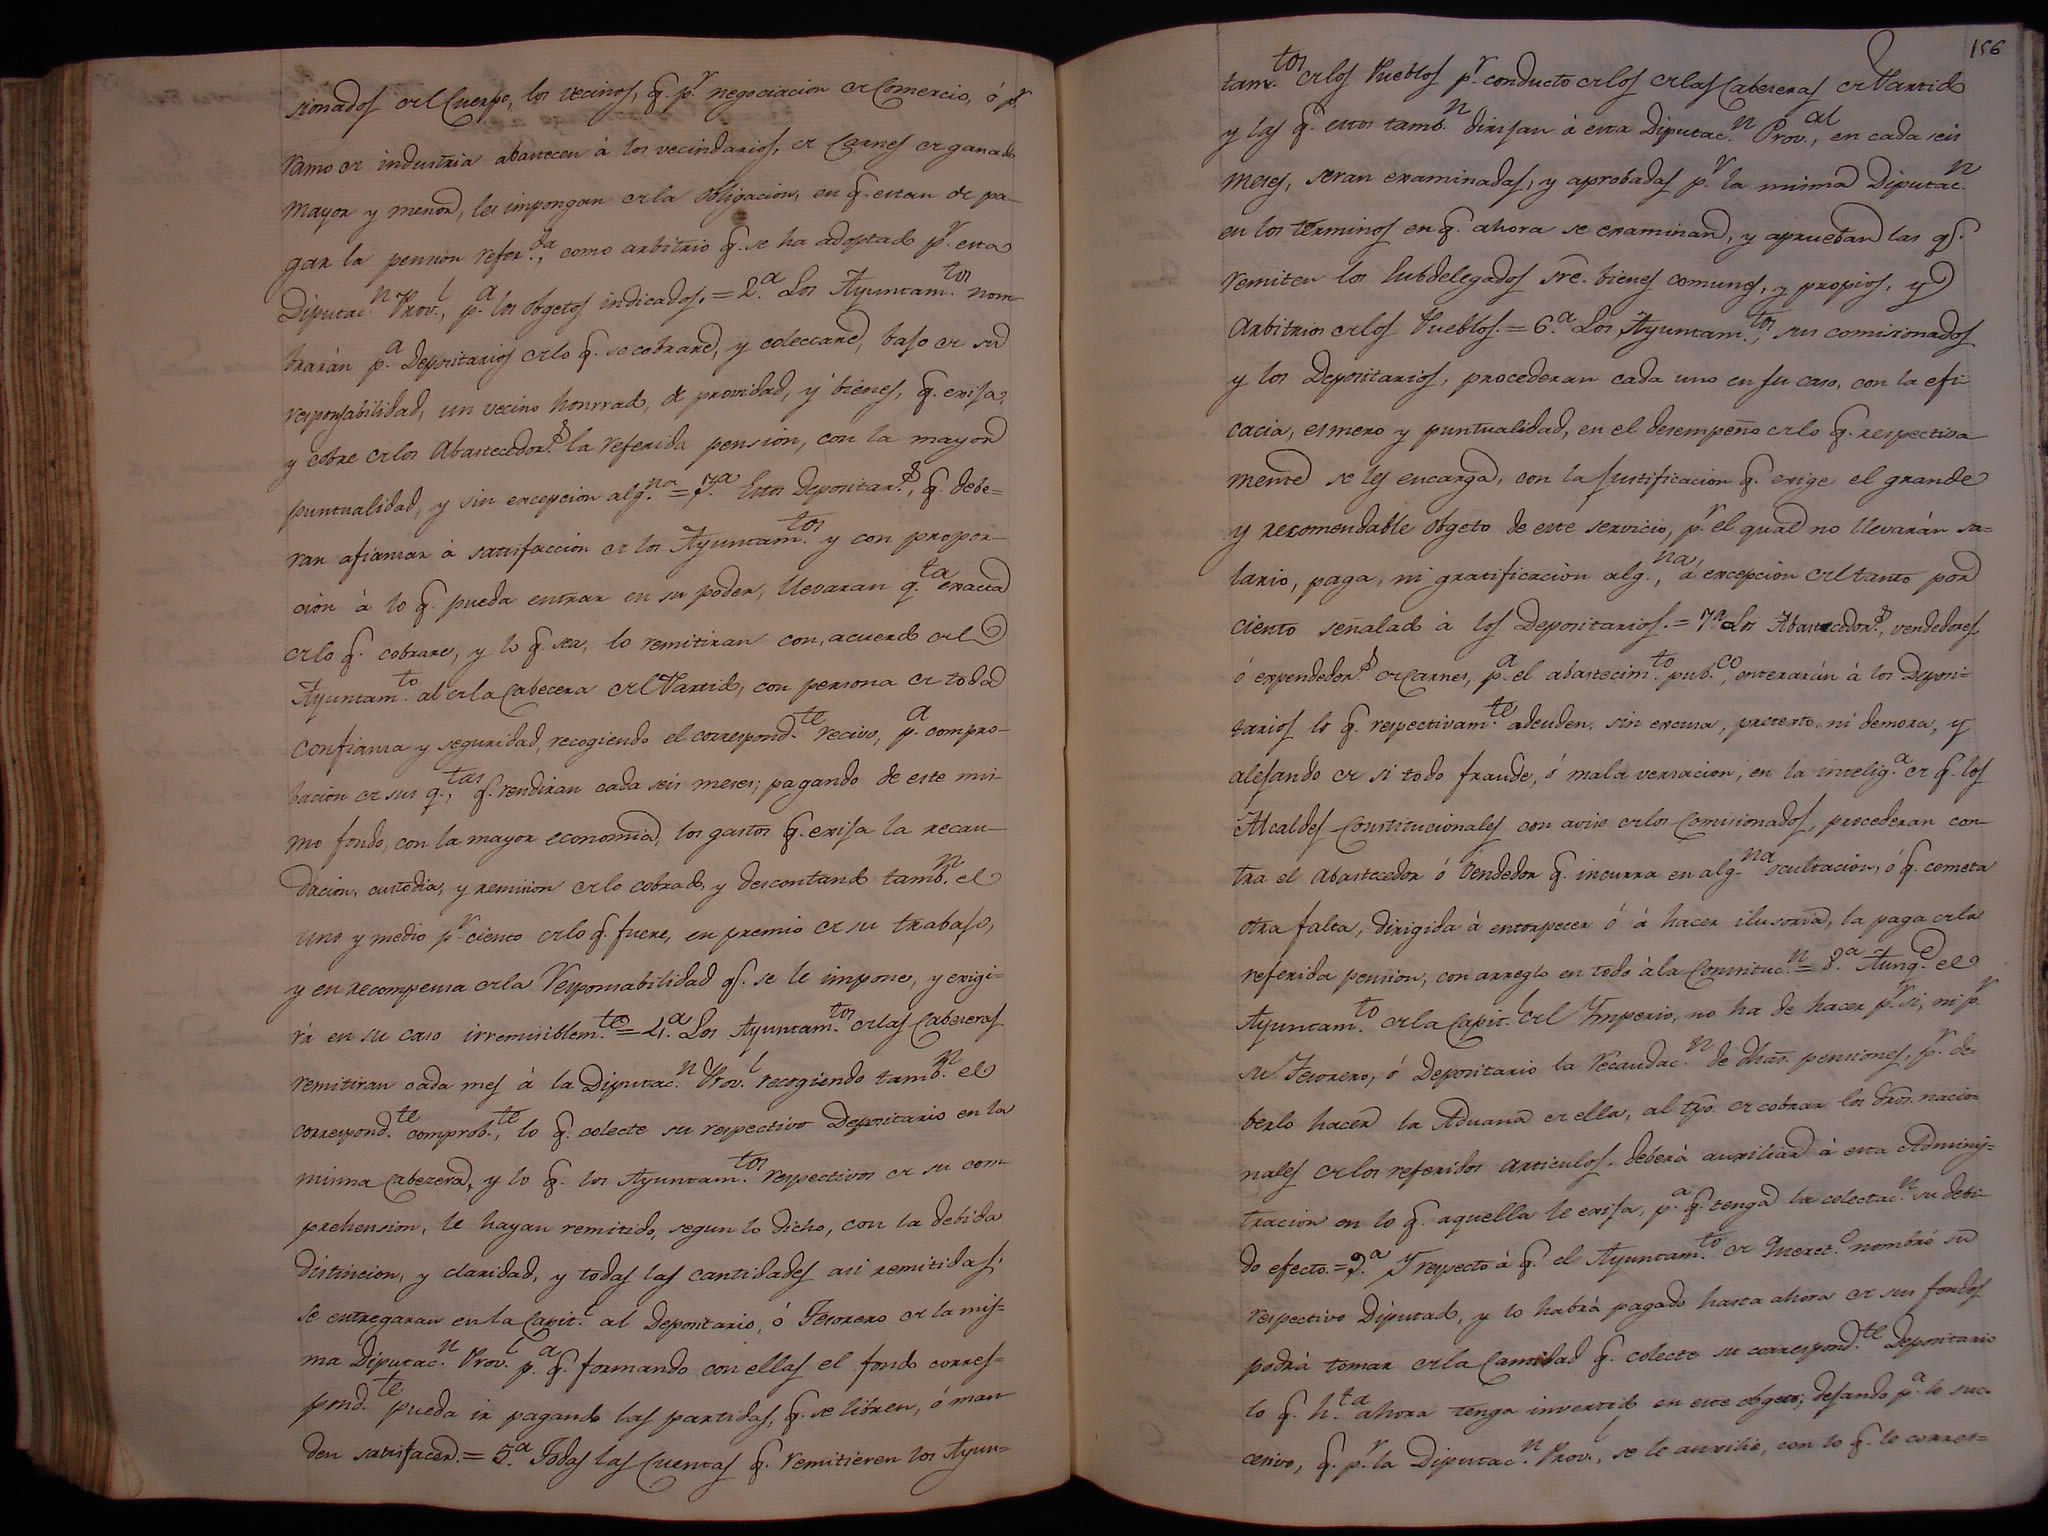 sionados del Cuerpo, los vecinos, q.e p.r negociacion de Comercio, ó p.r
ramo de industria abastecen á los vecindarios, de Carnes de ganado
mayor y menor, les impongan de la obligacion, en q.e estan de pa-
gar la pension refer.da, como arbitrio q.e se ha adoptado p.r esta
Diputac.n Prov.l, p.a los objetos indicados. = 2.a Los Ayuntam.tos nom-
brarán p.a Depositarios de lo q.e se cobrare, y colectare, bajo de su
responsabilidad, un vecino honrrado, de providad, y bienes, q.e exija,
y cobre de los Abastecedor.s la referida pension, con la mayor
puntualidad, y sin excepcion alg.na = 3.a Estos Depositar.s, q.e debe-
ran afianzar á satisfaccion de los Ayuntam.tos y con propor-
cion á lo q.e pueda entrar en su poder, llevaran q.ta exacta
de lo q.e cobrare, y lo q.e sea, lo remitiran con acuerdo del
Ayuntam.to al de la Cabecera del Partido, con persona de toda
confianza y seguridad, recogiendo el correspond.te recivo, p.a compro-
bacion de sus q.tas, q.e rendiran cada seis meses; pagando de este mis-
mo fondo, con la mayor economia, los gastos q.e exija la recau-
dacion, custodia, y remision de lo cobrado, y descontando tamb.n el
uno y medio p.r ciento de lo q.e fuere, en premio de su trabajo,
y en recompensa de la Responsabilidad q.e se le impone, y exigi-
rá en su caso irremisiblem.te = 4.a Los Ayuntam.tos de las Cabeceras
remitiran cada mes á la Diputac.n Prov.l recogiendo tamb.n el
correspond.te comprob.te, lo q.e colecte su respectivo Depositario en la
misma Cabezera, y lo q.e los Ayuntam.tos respectivos de su com-
prehension, le hayan remitido, segun lo dicho, con la debida
distincion, y claridad, y todas las cantidades asi remitidas,
se entregaran en la Capit.l al Depositario, ó Tesorero de la mis-
ma Diputac.n Prov.l p.a q.e formando con ellas el fondo corres-
pond.te pueda ir pagando las partidas, q.e se libren, ó man-
den satisfacer. = 5.a Todas las Cuentas q.e remitieren los Ayun-
156
tam.tos de los Pueblos p.r conducto de los de las Cabeceras de Partido
y las q.e estos tamb.n dirijan á esta Diputac.n Prov.al, en cada seis
meses, seran examinadas, y aprobadas p.r la misma Diputac.n
en los terminos en q.e ahora se examinan, y aprueban las q.e
remiten los Subdelegados sre. bienes comunes, y propios, y
Arbitrios de los Pueblos. = 6.a Los Ayuntam.tos, sus comisionados
y los Depositarios, procederan cada uno en su caso, con la efi-
cacia, esmero y puntualidad, en el desempeño de lo q.e respectiva-
mente se les encarga, con la justificacion q.e exige el grande
y recomendable objeto de este servicio, p.r el qual no llevarán sa-
lario, paga, ni gratificacion alg.na, á excepcion del tanto por
ciento señalado á los Depositarios. = 7.a Los Abastecedor.s, vendedores,
ó expendedor.s de Carnes, p.a el abastecim.to pub.co, enterarán á los Deposi-
tarios lo q.e respectivam.te adeuden, sin excusa, pretexto, ni demora, y
alejando de si todo fraude, ó mala versacion, en la intelig.a de q.e los
Alcaldes Constitucionales con aviso de los Comisionados, procederan con-
tra el Abastecedor ó Vendedor q.e incurra en alg.na ocultacion, ó q.e cometa
otra falta, dirigida á entorpecer ó á hacer ilusoria, la paga de la
referida pension, con arreglo en todo á la Constituc.n = 8.a Aunq.e el
Ayuntam.to de la Capit.l del Imperio, no ha de hacer p.r si, ni p.r
su Tesorero, ó Depositario la recaudac.n de dhas. pensiones, p.r de-
berlo hacer la Aduana de ella, al tpo. de cobrar los dros. nacio-
nales de los referidos articulos, deberá auxiliar á esta Adminis-
tracion en lo q.e aquella le exija, p.a q.e tenga la colectac.n su debi-
do efecto. = 9.a Y respecto á q.e el Ayuntam.to de Queret.o nombró su
respectivo Diputado, y lo habrá pagado hasta ahora de sus fondos
podrá tomar de la Cantidad q.e colecte su correspond.te Depositario
lo q.e h.ta ahora tenga invertido en este objeto; dejando p.a lo suc-
cesivo, q.e p.r la Diputac.n Prov.l, se le auxilie, con lo q.e le corres-